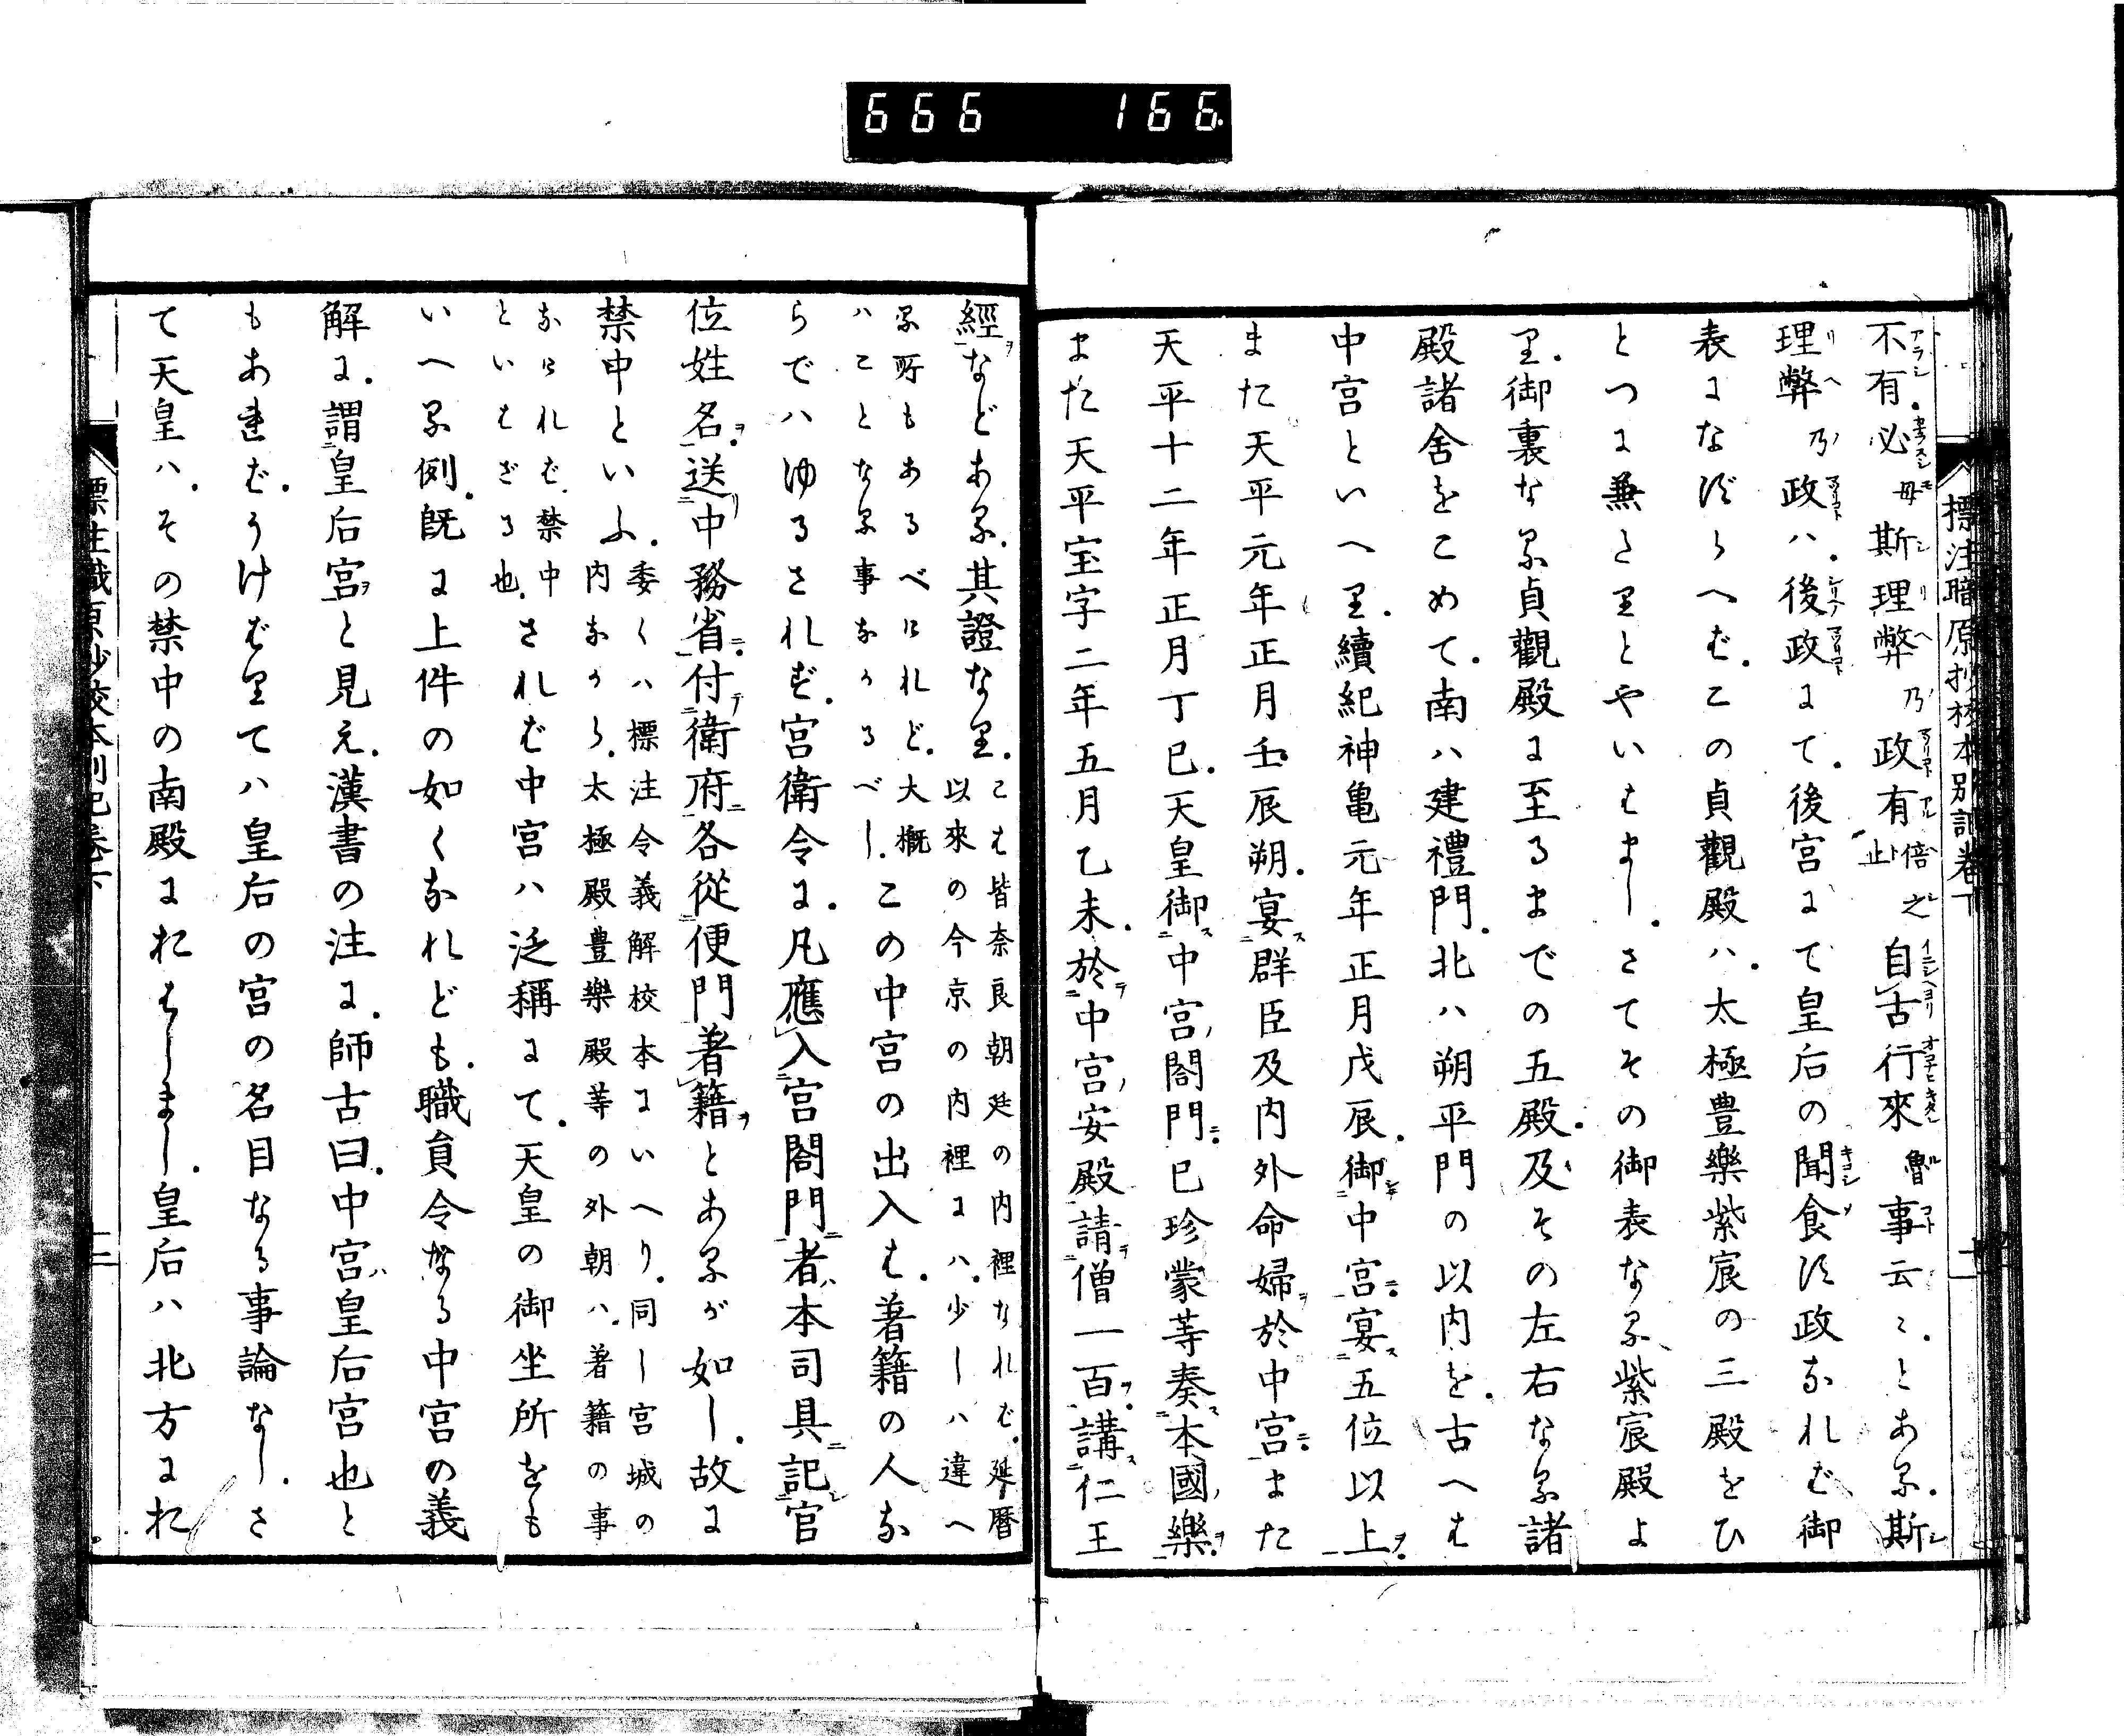 666 166.
標注職原抄校本別記卷下
不有必母斯理弊乃政有倍之止自古行來魯事云々。とある。斯
理弊乃政ハ。後政にて。後宮にて皇后の聞食す政なれば御
表になずらへば。この貞觀殿ハ。太極豊樂紫宸の三殿をひ
とつに兼たりとやいはまし。さてその御表なる紫宸殿よ
り。御裏なる貞觀殿に至るまでの五殿。及その左右なる諸
殿諸舎をこめて。南ハ建禮門。北ハ朔平門の以内を。古へは
中宮といへり。續紀神亀元年正月戊辰。御中宮宴五位以上
また天平元年正月壬辰朔。宴群臣及内外命婦於中宮また
天平十二年正月丁巳。天皇御中宮閤門。已珍蒙等奏本國樂。
また天平宝字二年五月乙未。於中宮安殿請僧一百。講仁王
經などある。其證なり。こは皆奈良朝廷の内裡なれば。延暦
以來の今京の内裡にハ。少しハ違へ
る所もあるべけれど。大概
ハことなる事なかるべし。この中宮の出入は。著籍の人な
らでハゆるされず。宮衛令に。凡應入宮閤門者本司具記官
位姓名。送中務省付衛府各從便門著籍とあるが如し。故に
禁中といふ。委くハ標注令義解校本にいへり。同し宮城の
内なから。太極殿豊樂殿等の外朝ハ。著籍の事
なければ。禁中
といはざる也。されば中宮ハ泛稱にて。天皇の御坐所をも
いへる例。既に上件の如くなれども。職員令なる中宮の義
解に。謂皇后宮と見え。漢書の注に。師古曰。中宮皇后宮也と
もあれば。うけばりてハ皇后の宮の名目なる事論なし。さ
て天皇ハ。その禁中の南殿におはしまし。皇后ハ北方にお
標注職原抄校本別記卷下
二